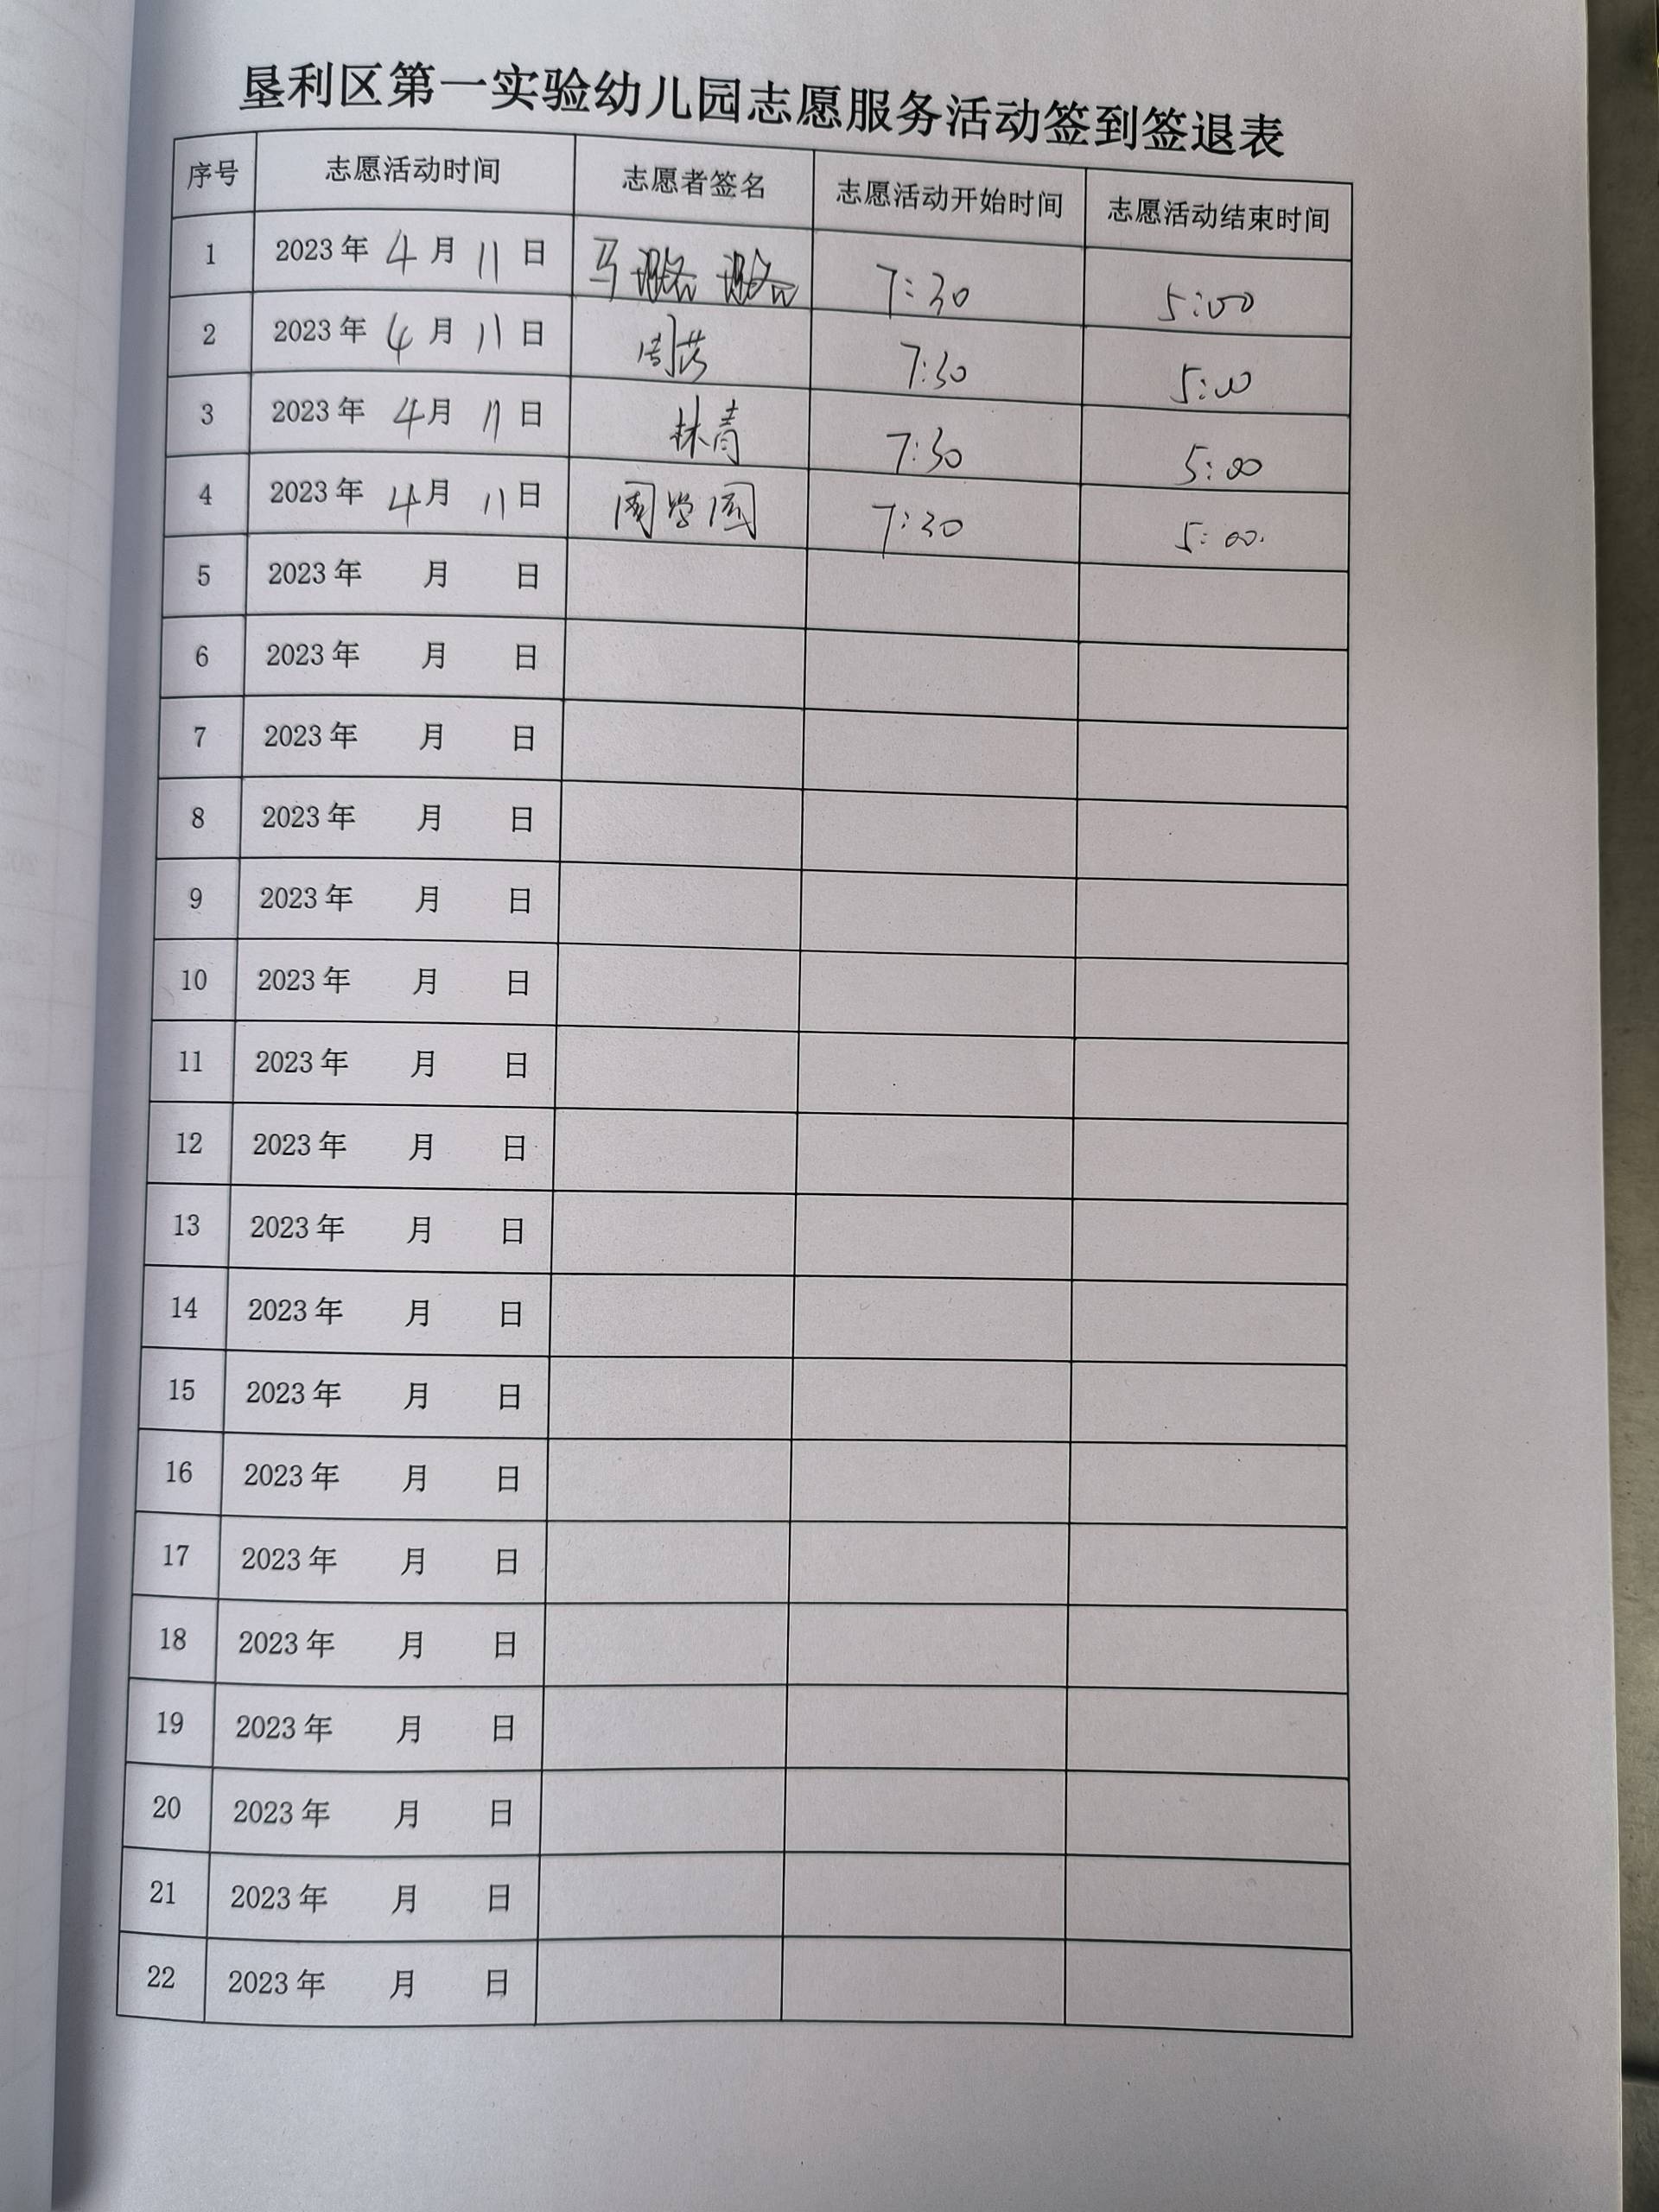 垦利区第一实验幼儿园志愿服务活动签到签退表
序号 志愿活动时间 志愿者签名 志愿活动开始时间 志愿活动结束时间
1 2023年 4月 11日 马璐璐 7:30 5:00
2 2023年 4月 11日 周 7:30 5:00
3 2023年 4月 11日 林青 7:30 5:00
4 2023年 4月 11日 周学国 7:30 5:00.
5 2023年 月 日
6 2023年 月 日
7 2023年 月 日
8 2023年 月 日
9 2023年 月 日
10 2023年 月 日
11 2023年 月 日
12 2023年 月 日
13 2023年 月 日
14 2023年 月 日
15 2023年 月 日
16 2023年 月 日
17 2023年 月 日
18 2023年 月 日
19 2023年 月 日
20 2023年 月 日
21 2023年 月 日
22 2023年 月 日